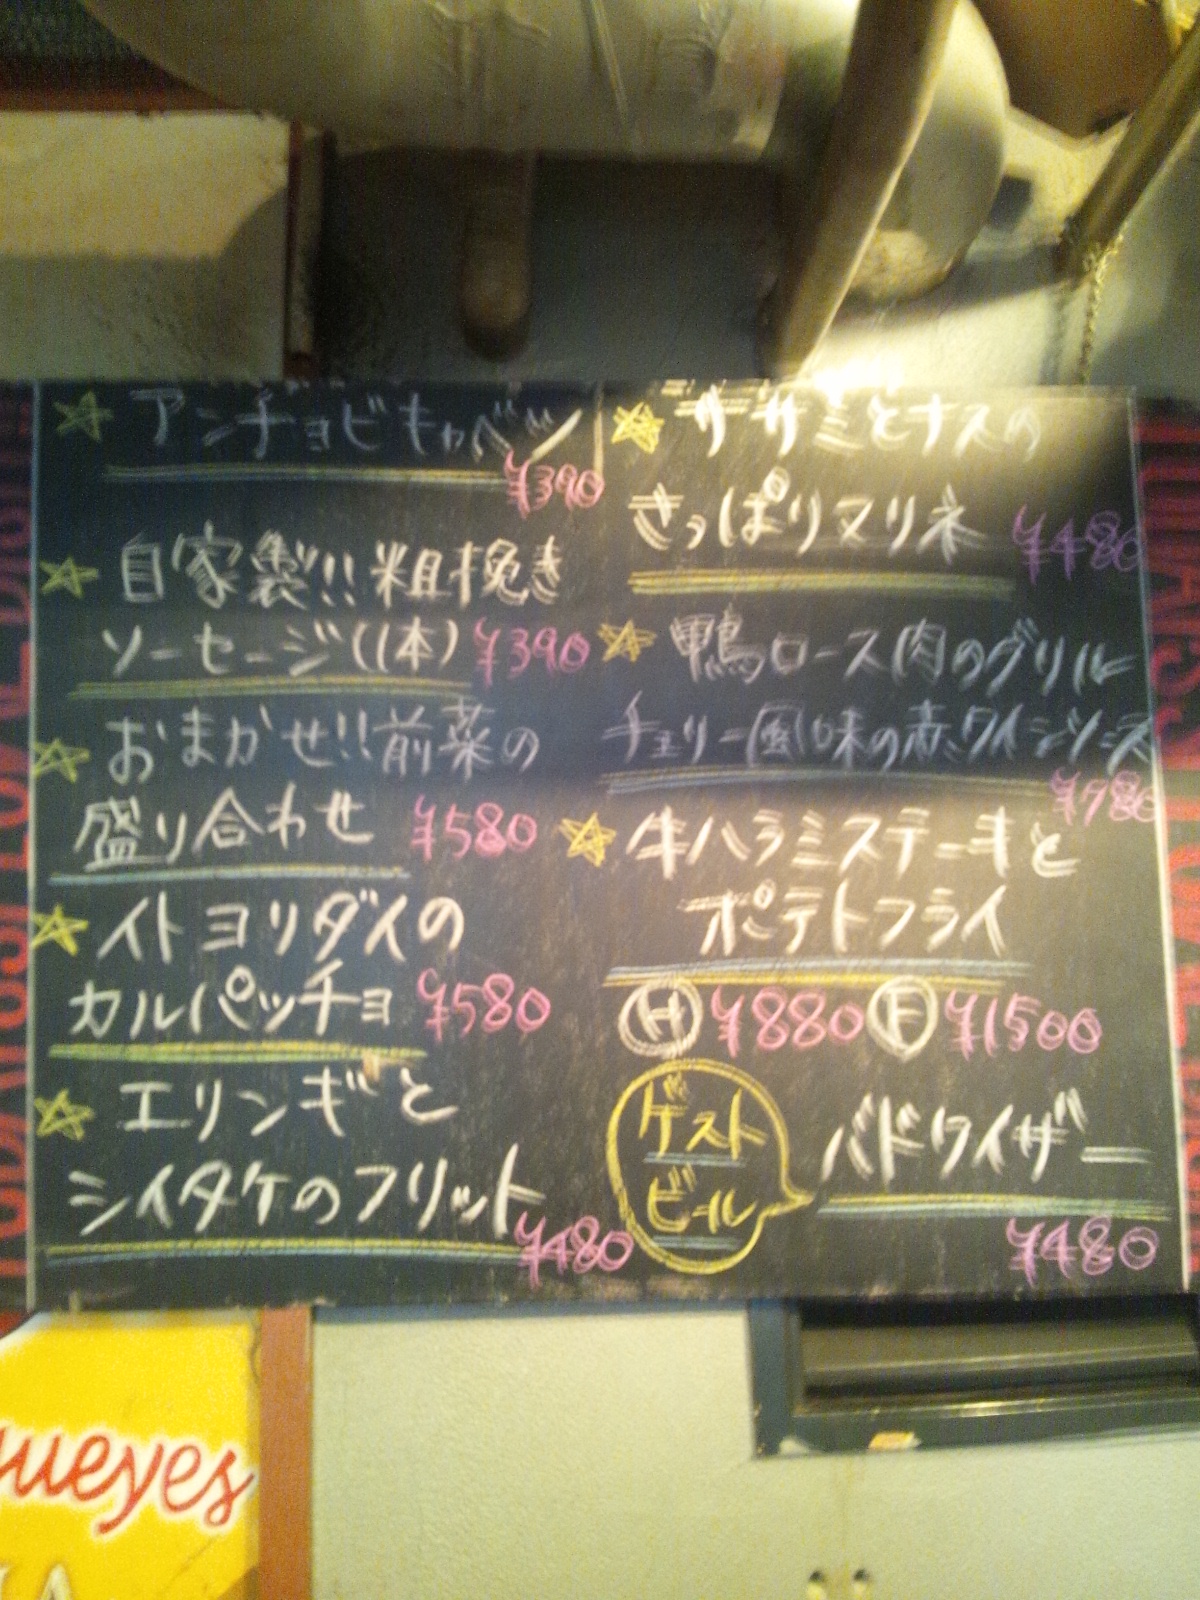 ☆アンチョビキャベツ
¥390
☆自家製!!粗挽き
ソーセージ(1本) ¥390
☆おまかせ!!前菜の
盛り合わせ ¥580
☆イトヨリダイの
カルパッチョ ¥580
☆エリンギと
シイタケのフリット
¥480
☆ササミとナスの
さっぱりマリネ ¥480
☆鴨ロース肉のグリル
チェリー風味の赤ワインソース
¥780
☆牛ハラミステーキと
ポテトフライ
Ⓗ¥880 Ⓕ¥1500
ゲスト
ビール
バドワイザー
¥480
ueyes